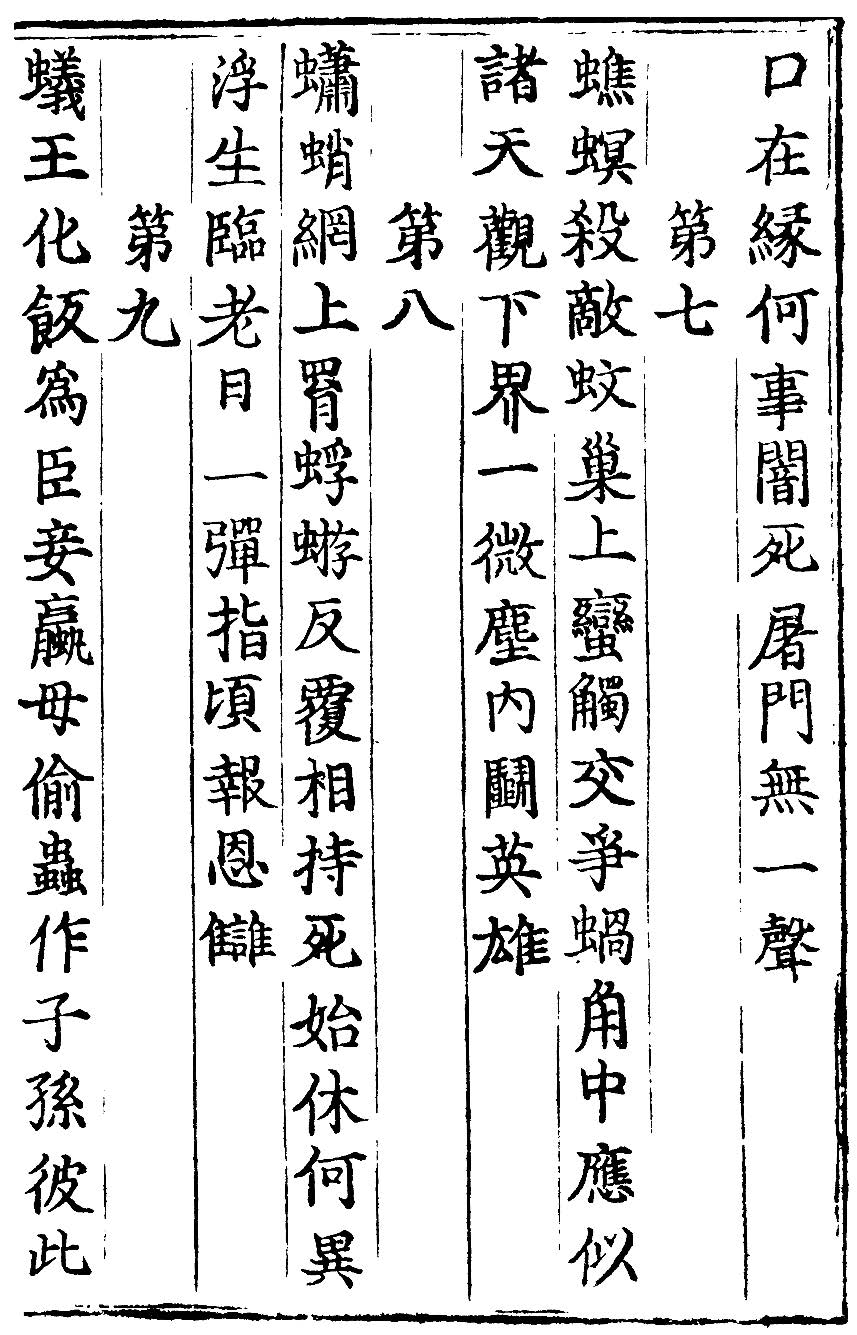 口在縁何事闇死屠門無一聲
第七
蟭螟殺敵蚊巢上蠻觸交爭蝸角中應似
諸天觀下界一微塵内鬬英雄
第八
蠨蛸網上罥蜉蝣反覆相持死始休何異
浮生臨老日一彈指頃報恩讎
第九
蟻王化飯爲臣妾蠃母偷蟲作子孫彼此